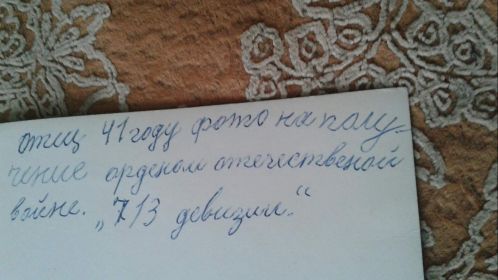 отец 41 году фото на полу-
чение орденом отечественой
войне. „713 девизии."